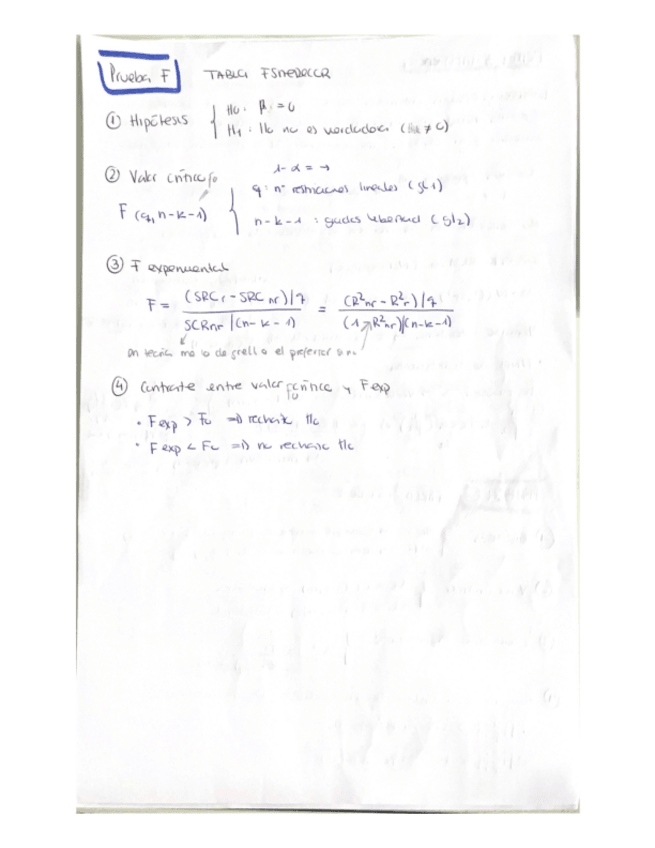 Prueba F TABLA F SNEDECOR
① Hipótesis { H0: βi = 0
H1: H0 no es verdadera (H0 ≠ 0)
② Valor crítico fc 1-α = →
F (q, n-k-1) { q: nº restricciones lineales (gl1)
n-k-1 : grados libertad (gl2)
③ F experimental
F = (SRCr - SRCnr)/q / SCRnr/(n-k-1) = (R²nr - R²r)/q / (1-R²nr)/(n-k-1)
en teoría me lo da el profesor
④ Contraste entre valor crítico fc y F exp
• F exp > Fc ⇒ rechazo H0
• F exp < Fc ⇒ no rechazo H0